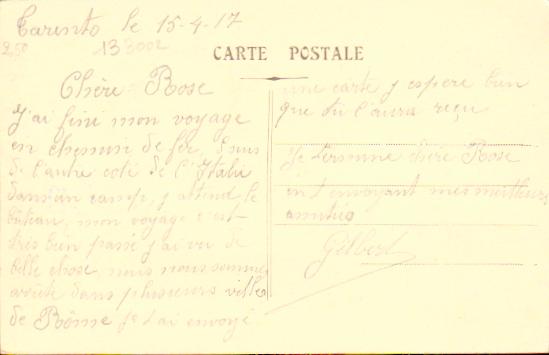 Tarento le 15-4-17
2,50
133002
CARTE POSTALE
Chère Rose
J'ai fini mon voyage
en chemin de fer, suis
de l'autre coté de l'Italie
dans un camp, j attend le
bateau, mon voyage c'est
très bien passé j'ai vu de
belle chose, nous nous sommes
arrêté dans plusieurs ville
de Rome je t'ai envoyé
une carte j espère bien
que tu l'aura reçu
Je termine chère Rose
en t envoyant mes meilleurs
amitiés
Gilbert